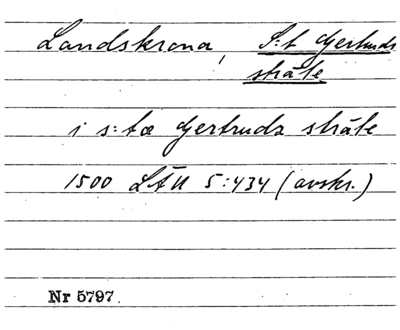 Landskrona, S:t Gertruds
stråte
i s:tæ Gertrudz stråte
1500 LÄU 5:434 (avskr.)
Nr 5797.